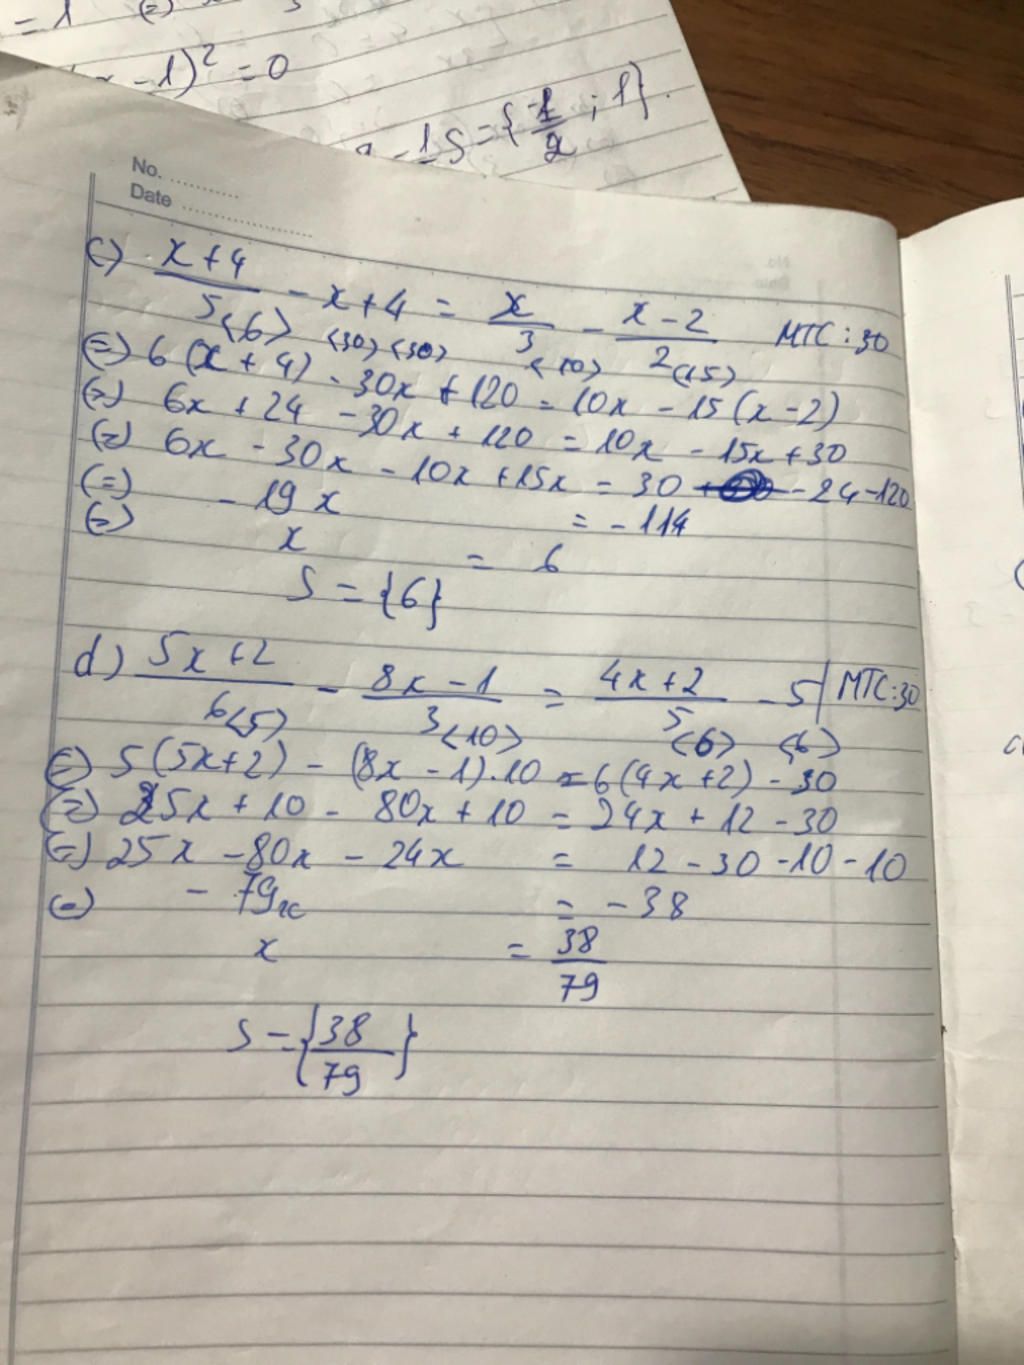 = 1 (=)
- 1)² = 0
- 1 S = {-1/2 ; 1}.
No. ............
Date ......................
c) (x+4)/5 <6> - x + 4 <30> <30> = x/3 <10> - (x-2)/2 <15> MTC: 30
(=) 6(x+4) - 30x + 120 = 10x - 15(x-2)
(=) 6x + 24 - 30x + 120 = 10x - 15x + 30
(=) 6x - 30x - 10x + 15x = 30 - 24 - 120
(=) - 19x = - 114
(=) x = 6
S = {6}
d) (5x+2)/6 <5> - (8x-1)/3 <10> = (4x+2)/5 <6> - 5 <6> | MTC: 30
(=) 5(5x+2) - (8x-1).10 = 6(4x+2) - 30
(=) 25x + 10 - 80x + 10 = 24x + 12 - 30
(=) 25x - 80x - 24x = 12 - 30 - 10 - 10
(=) - 79x = - 38
x = 38/79
S = {38/79}